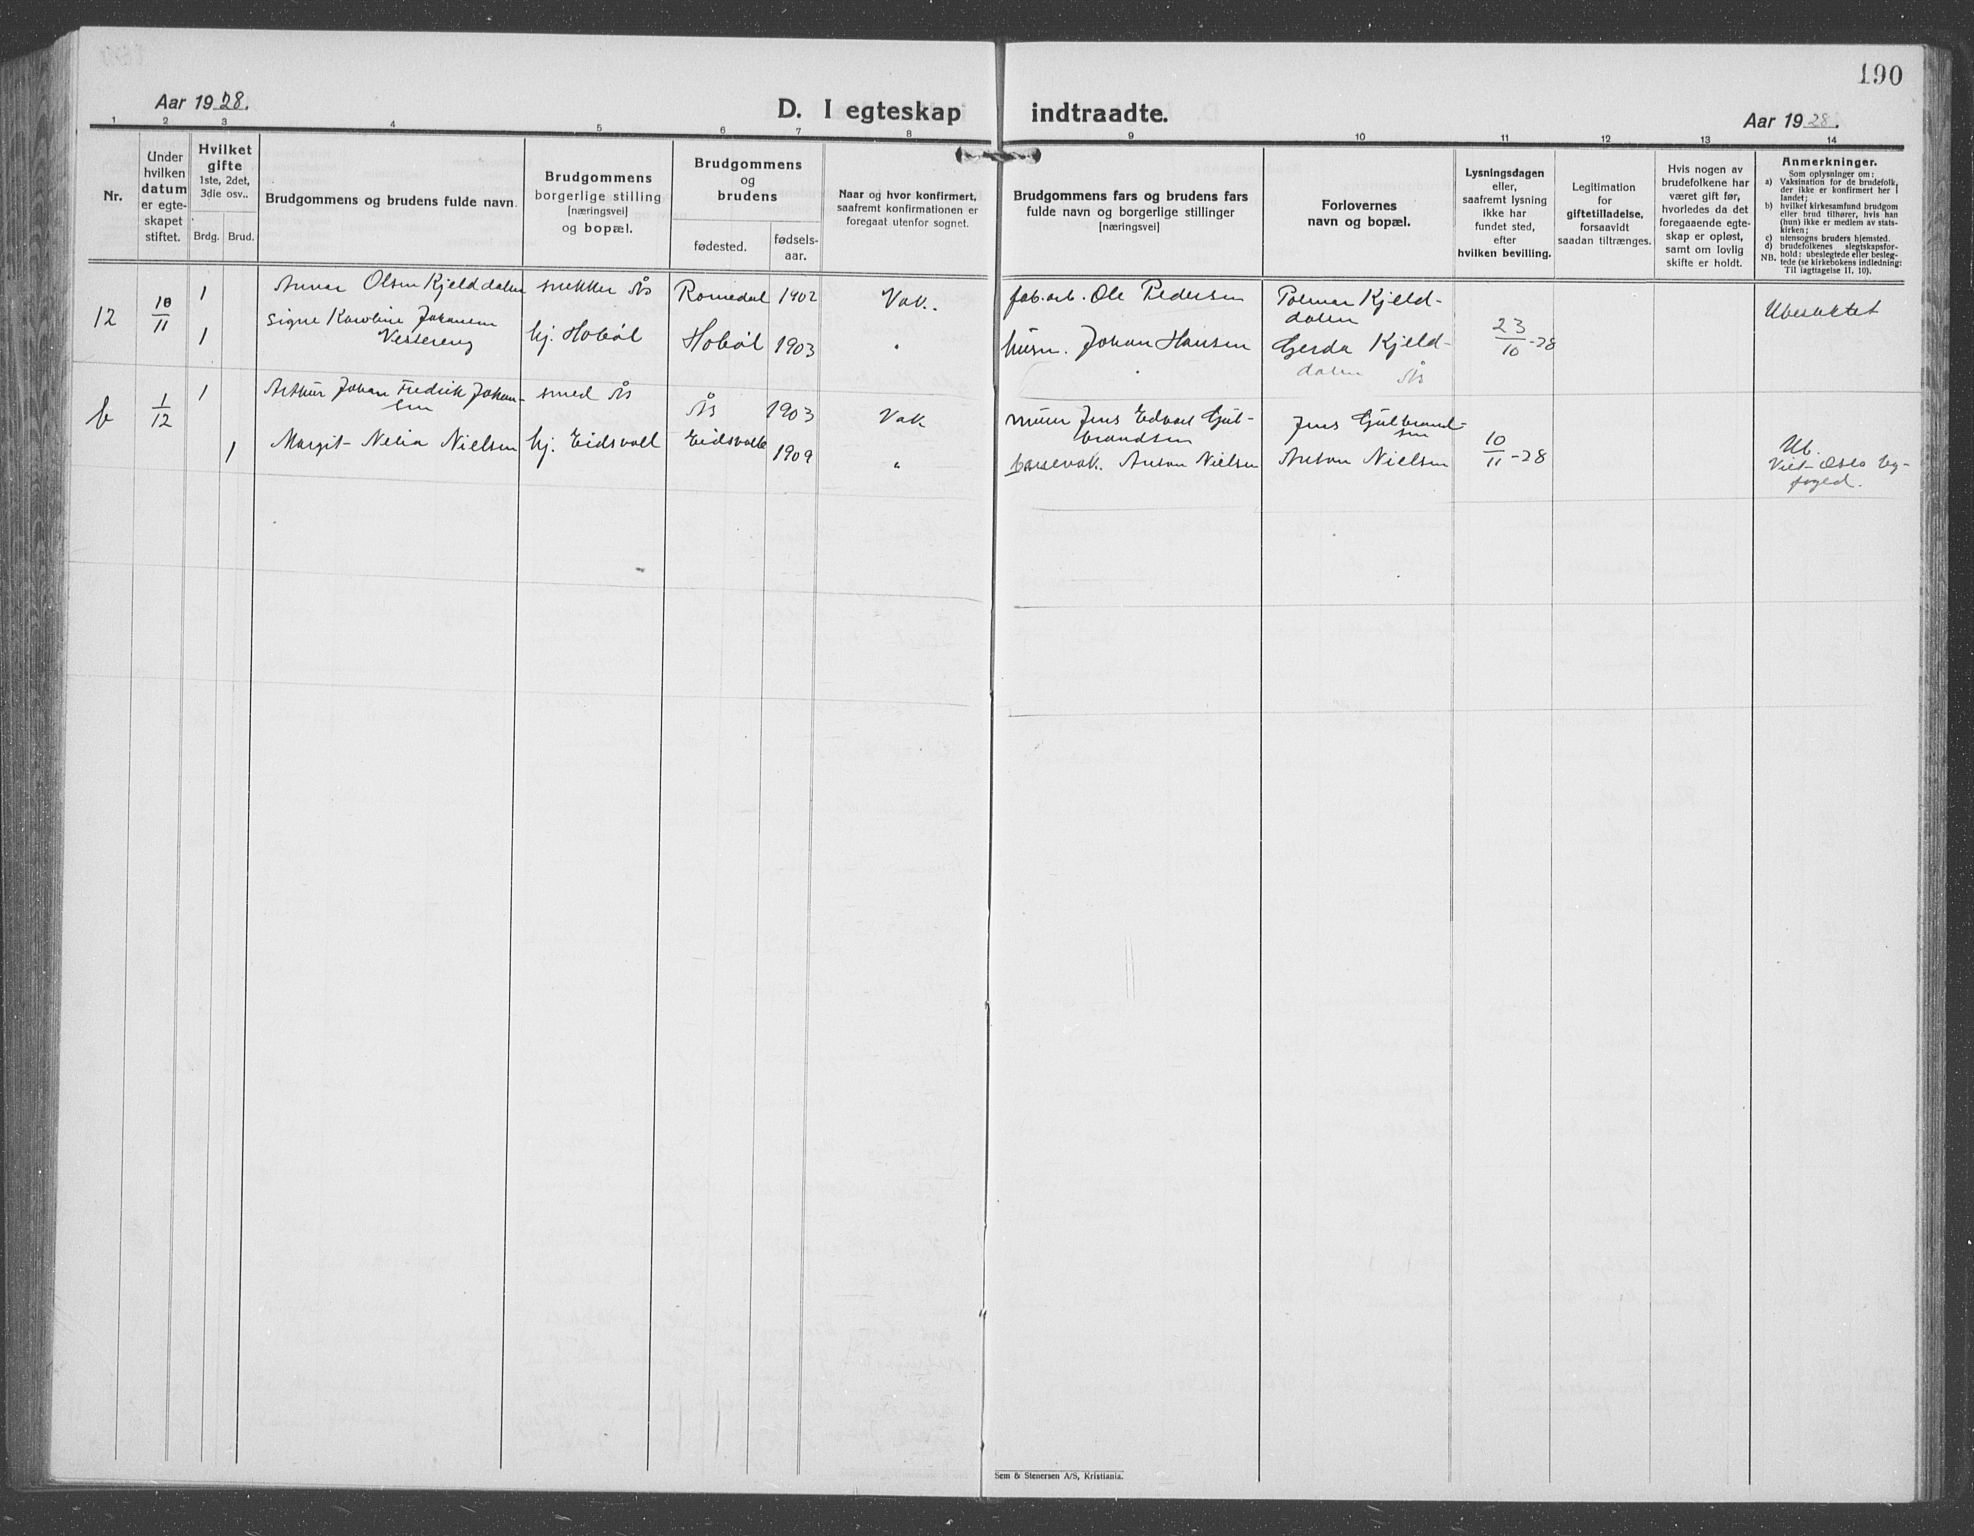 190
Aar 1928.
D. I egteskap indtraadte.
Aar 1928.
1 2 3 4 5 6 7 8 9 10 11 12 13 14
Nr.
Under
hvilken
datum
er egte-
skapet
stiftet.
Hvilket
gifte
1ste, 2det,
3die osv..
Brdg. Brud.
Brudgommens og brudens fulde navn.
Brudgommens
borgerlige stilling
[næringsvei]
og bopæl.
Brudgommens
og
brudens
fødested.
fødsels-
aar.
Naar og hvor konfirmert,
saafremt konfirmationen er
foregaat utenfor sognet.
Brudgommens fars og brudens fars
fulde navn og borgerlige stillinger
[næringsvei]
Forlovernes
navn og bopæl.
Lysningsdagen
eller,
saafremt lysning
ikke har
fundet sted,
efter
hvilken bevilling.
Legitimation
for
giftetilladelse,
forsaavidt
saadan tiltrænges.
Hvis nogen av
brudefolkene har
været gift før,
hvorledes da det
foregaaende egte-
skap er opløst,
samt om lovlig
skifte er holdt.
Anmerkninger.
Som oplysninger om:
a) Vaksination for de brudefolk,
der ikke er konfirmert her i
landet;
b) hvilket kirkesamfund brudgom
eller brud tilhører, hvis han
(hun) ikke er medlem av stats-
kirken;
c) utensogns bruders hjemsted.
d) brudefolkenes slegtskapsfor-
hold: ubeslegtede eller besleg-
NB. tede (se kirkebokens indledning:
Til iagttagelse II, 10).
12 10/11 1 Olsen Kjelddalen snekker Ås Romedal 1902 Vak. fab.arb. Ole Pedersen Kjeld-
dalen
Ubesektet
1 Signe Karoline Johansen
Vestereng
hj. Hobøl Hobøl 1903 " husm. Johan Hansen Gerda Kjeld-
dalen Ås
23/10-28
b 1/12 1 Arthur Johan Fredrik Johan-
sen
smed Ås Ås 1903 Vak murer Jens Edvart Gul-
brandsen
Jens Gulbrand-
sen
1 Margit Nielsen hj. Eidsvoll Eidsvoll 1909 " Anton Nielsen Anton Nielsen 10/11-28 Ub.
Viet Oslo by-
foged.
Sem & Stenersen A/S, Kristiania.